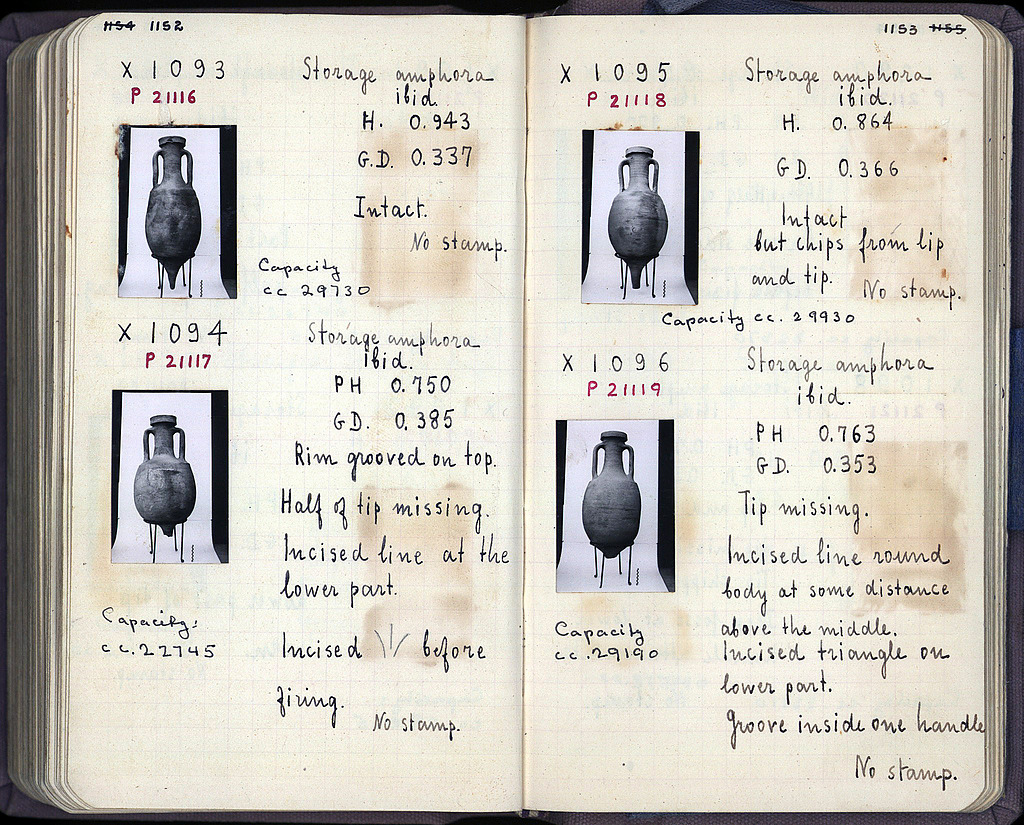 1154 1152
X 1093
P 21116
Storage amphora
ibid.
H. 0.943
G.D. 0.337
Intact.
No stamp.
Capacity
cc 29730
X 1094
P 21117
Storage amphora
ibid.
PH 0.750
GD. 0.385
Rim grooved on top.
Half of tip missing.
Incised line at the
lower part.
Capacity:
cc. 22745
Incised \|/ before
firing.
No stamp.
1153 1155
X 1095
P 21118
Storage amphora
ibid.
H. 0.864
GD. 0.366
Intact
but chips from lip
and tip.
No stamp.
Capacity cc. 29930
X 1096
P 21119
Storage amphora
ibid.
PH 0.763
GD. 0.353
Tip missing.
Incised line round
body at some distance
above the middle.
Capacity
cc. 29190
Incised triangle on
lower part.
Groove inside one handle
No stamp.